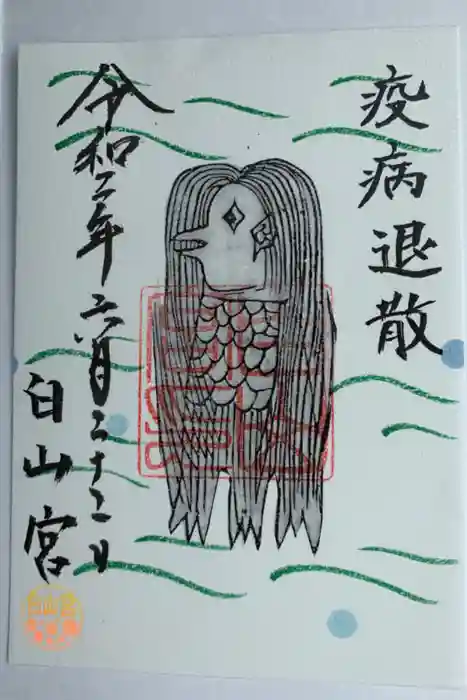 疫病退散
令和二年六月二十二日
白山宮